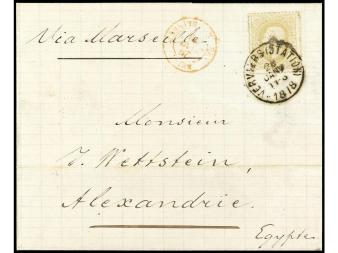 Via Marseille.
VERVIERS (STATION)
1878
Monsieur
J. Wettstein,
Alexandrie.
Egypte